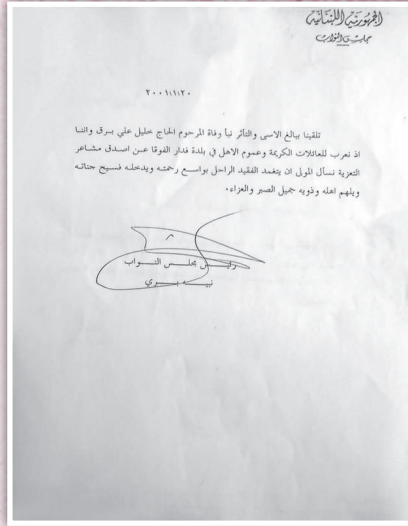 الجمهورية اللبنانية
مجلس النواب
٢٠٠١/١/٢٠
تلقينا ببالغ الاسى والتأثر نبأ وفاة المرحوم الحاج خليل علي برق واننا
اذ نعرب للعائلات الكريمة وعموم الاهل في بلدة فدار الفوقا عن اصدق مشاعر
التعزية نسأل المولى ان يتغمد الفقيد الراحل بواسع رحمته ويدخله فسيح جناته
ويلهم اهله وذويه جميل الصبر والعزاء.
رئيس مجلس النواب
نبيه بري